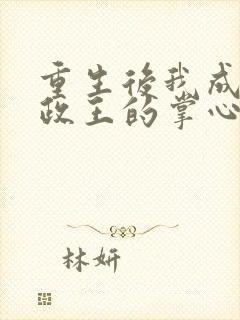 重生後我成
政王的掌心
林妍